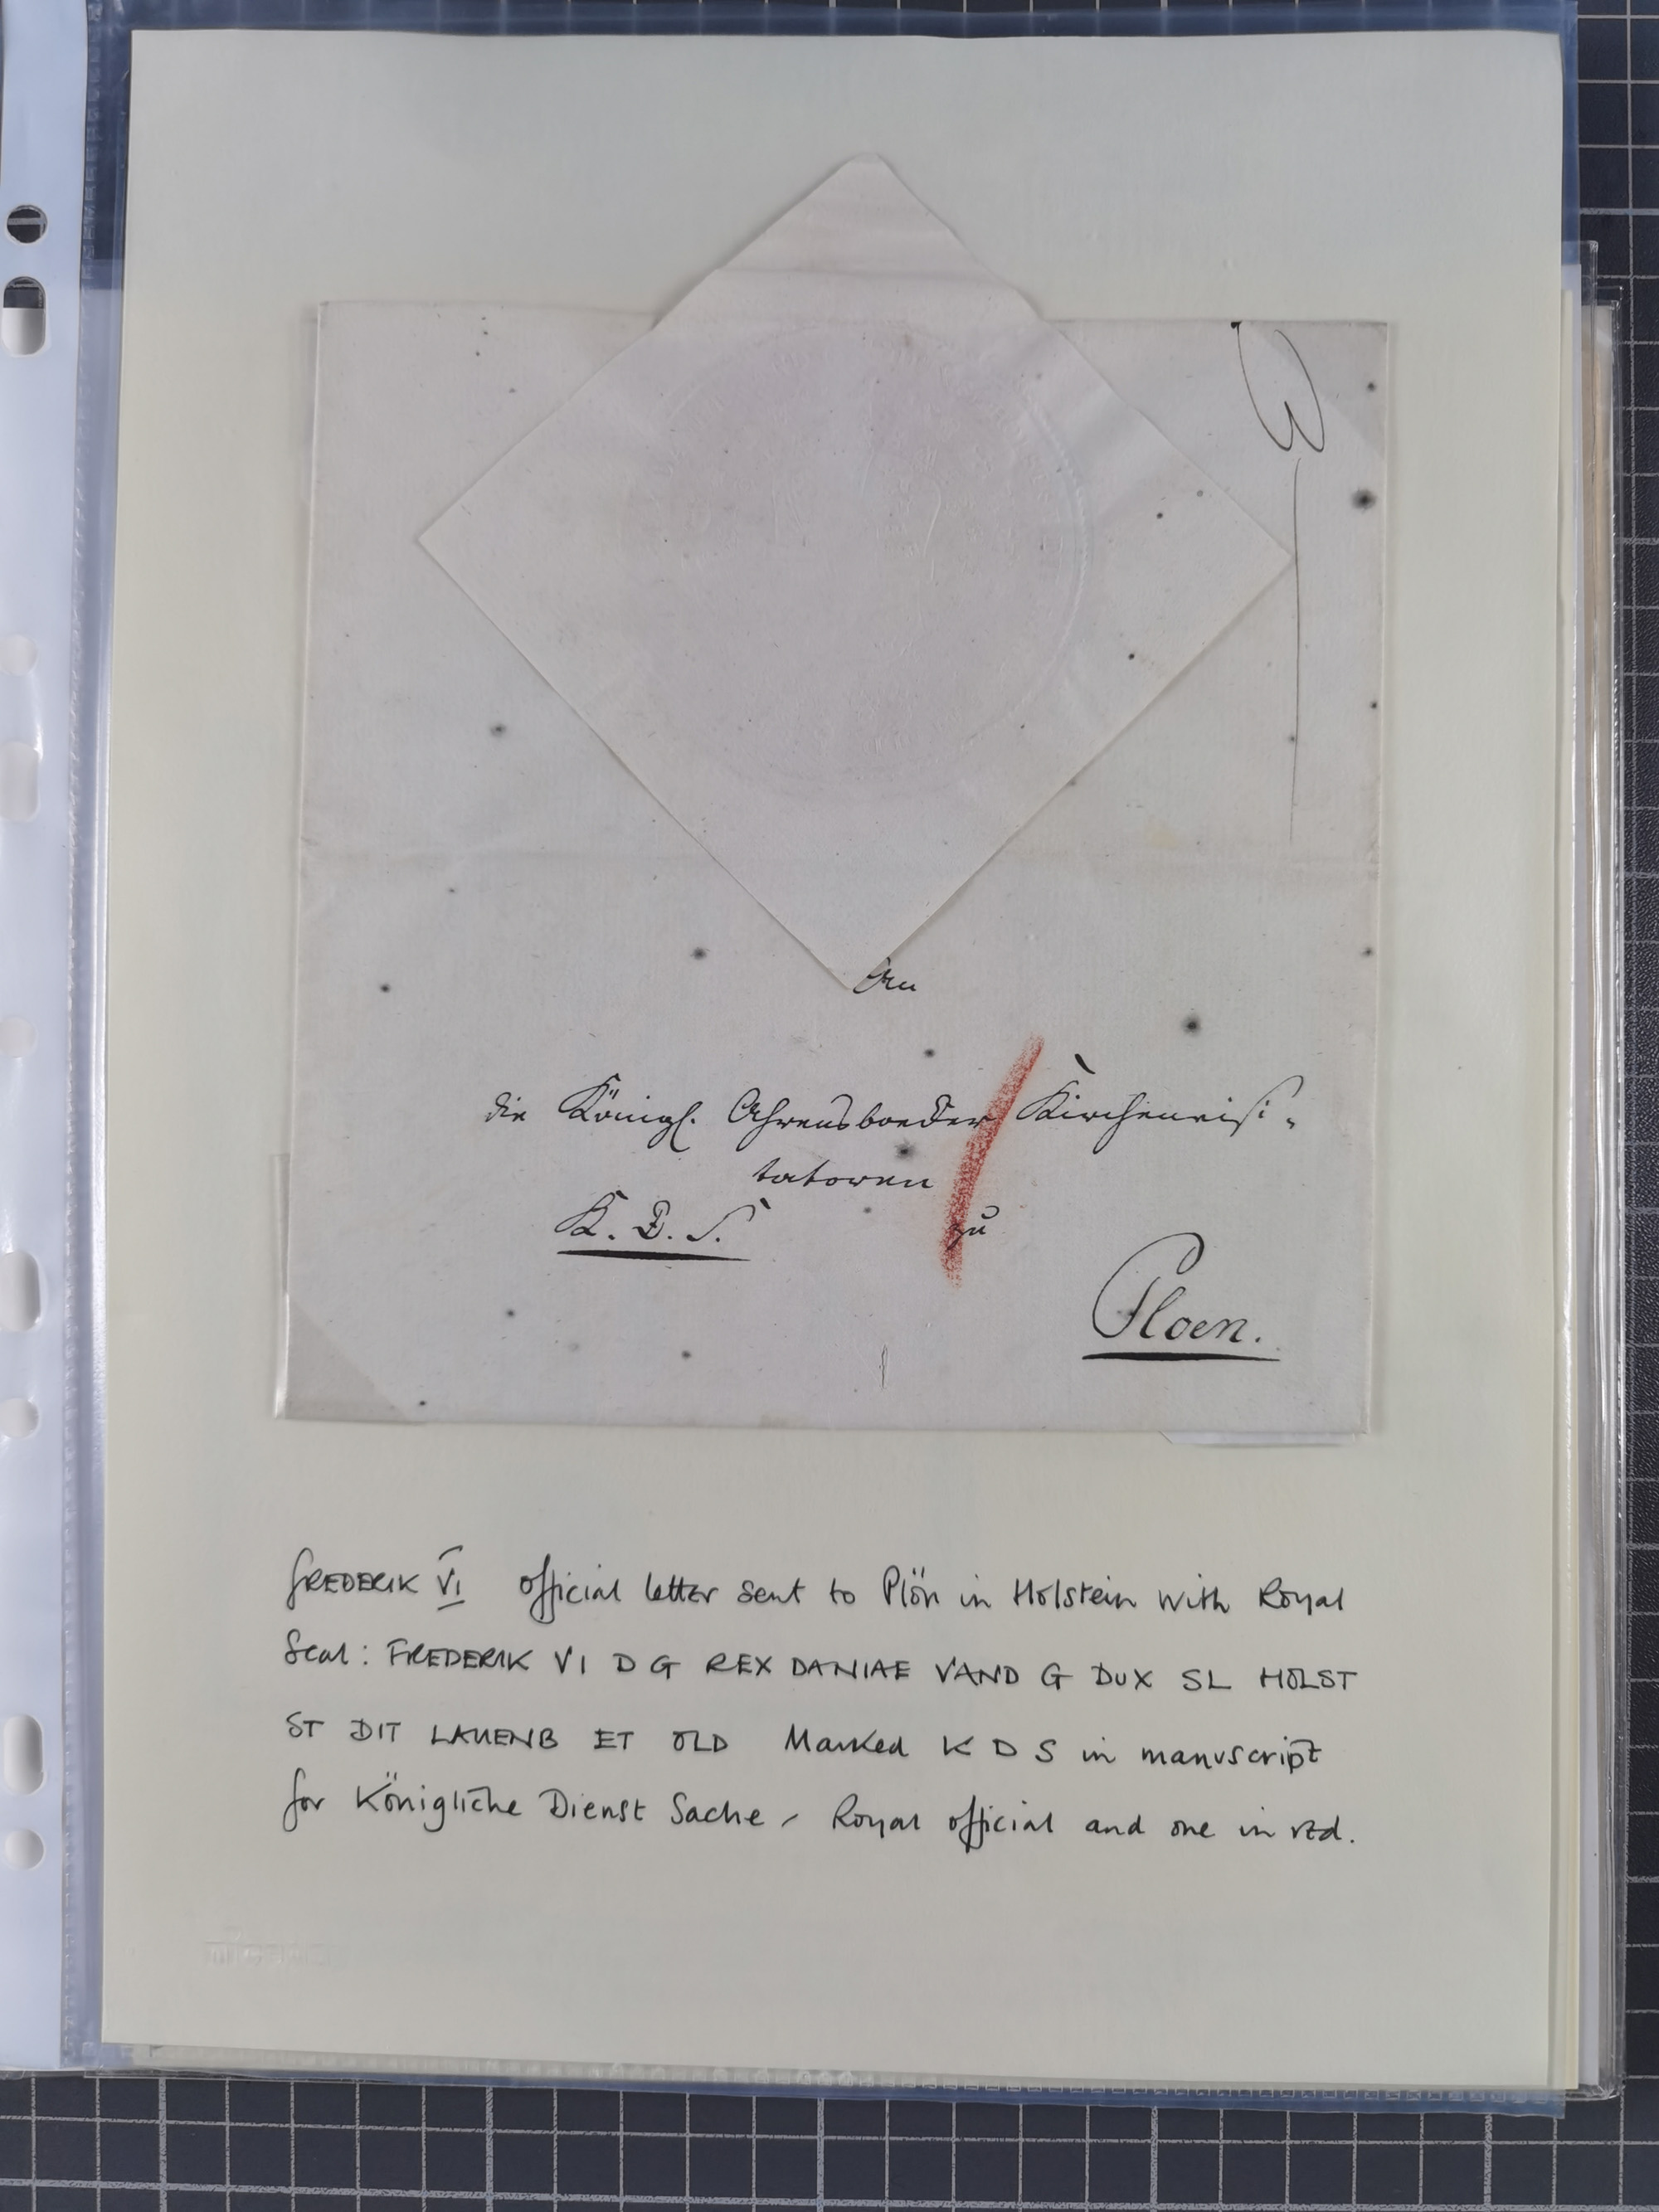 An
die Königl. Ahrensboecker Kirchenvisi-
tatoren
K. D. S. zu
Ploen.
FREDERIK VI official letter sent to Plön in Holstein with Royal
Seal: FREDERIK VI D G REX DANIAE VAND G DUX SL HOLST
ST DIT LAUENB ET OLD Marked K D S in manuscript
for Königliche Dienst Sache, Royal official and one in red.